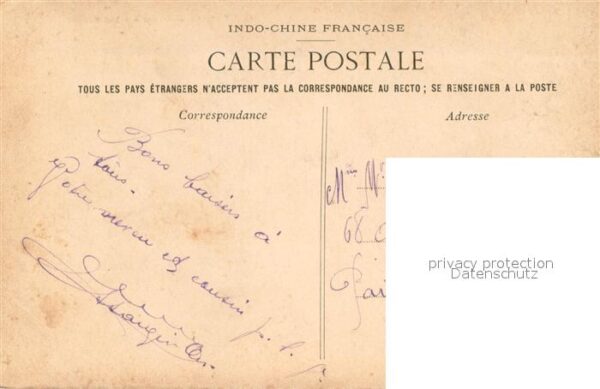 INDO-CHINE FRANÇAISE
CARTE POSTALE
TOUS LES PAYS ÉTRANGERS N'ACCEPTENT PAS LA CORRESPONDANCE AU RECTO ; SE RENSEIGNER A LA POSTE
Correspondance
Bons baisers à
tous.
Votre neveu et cousin
Adresse
68
privacy protection
Datenschutz